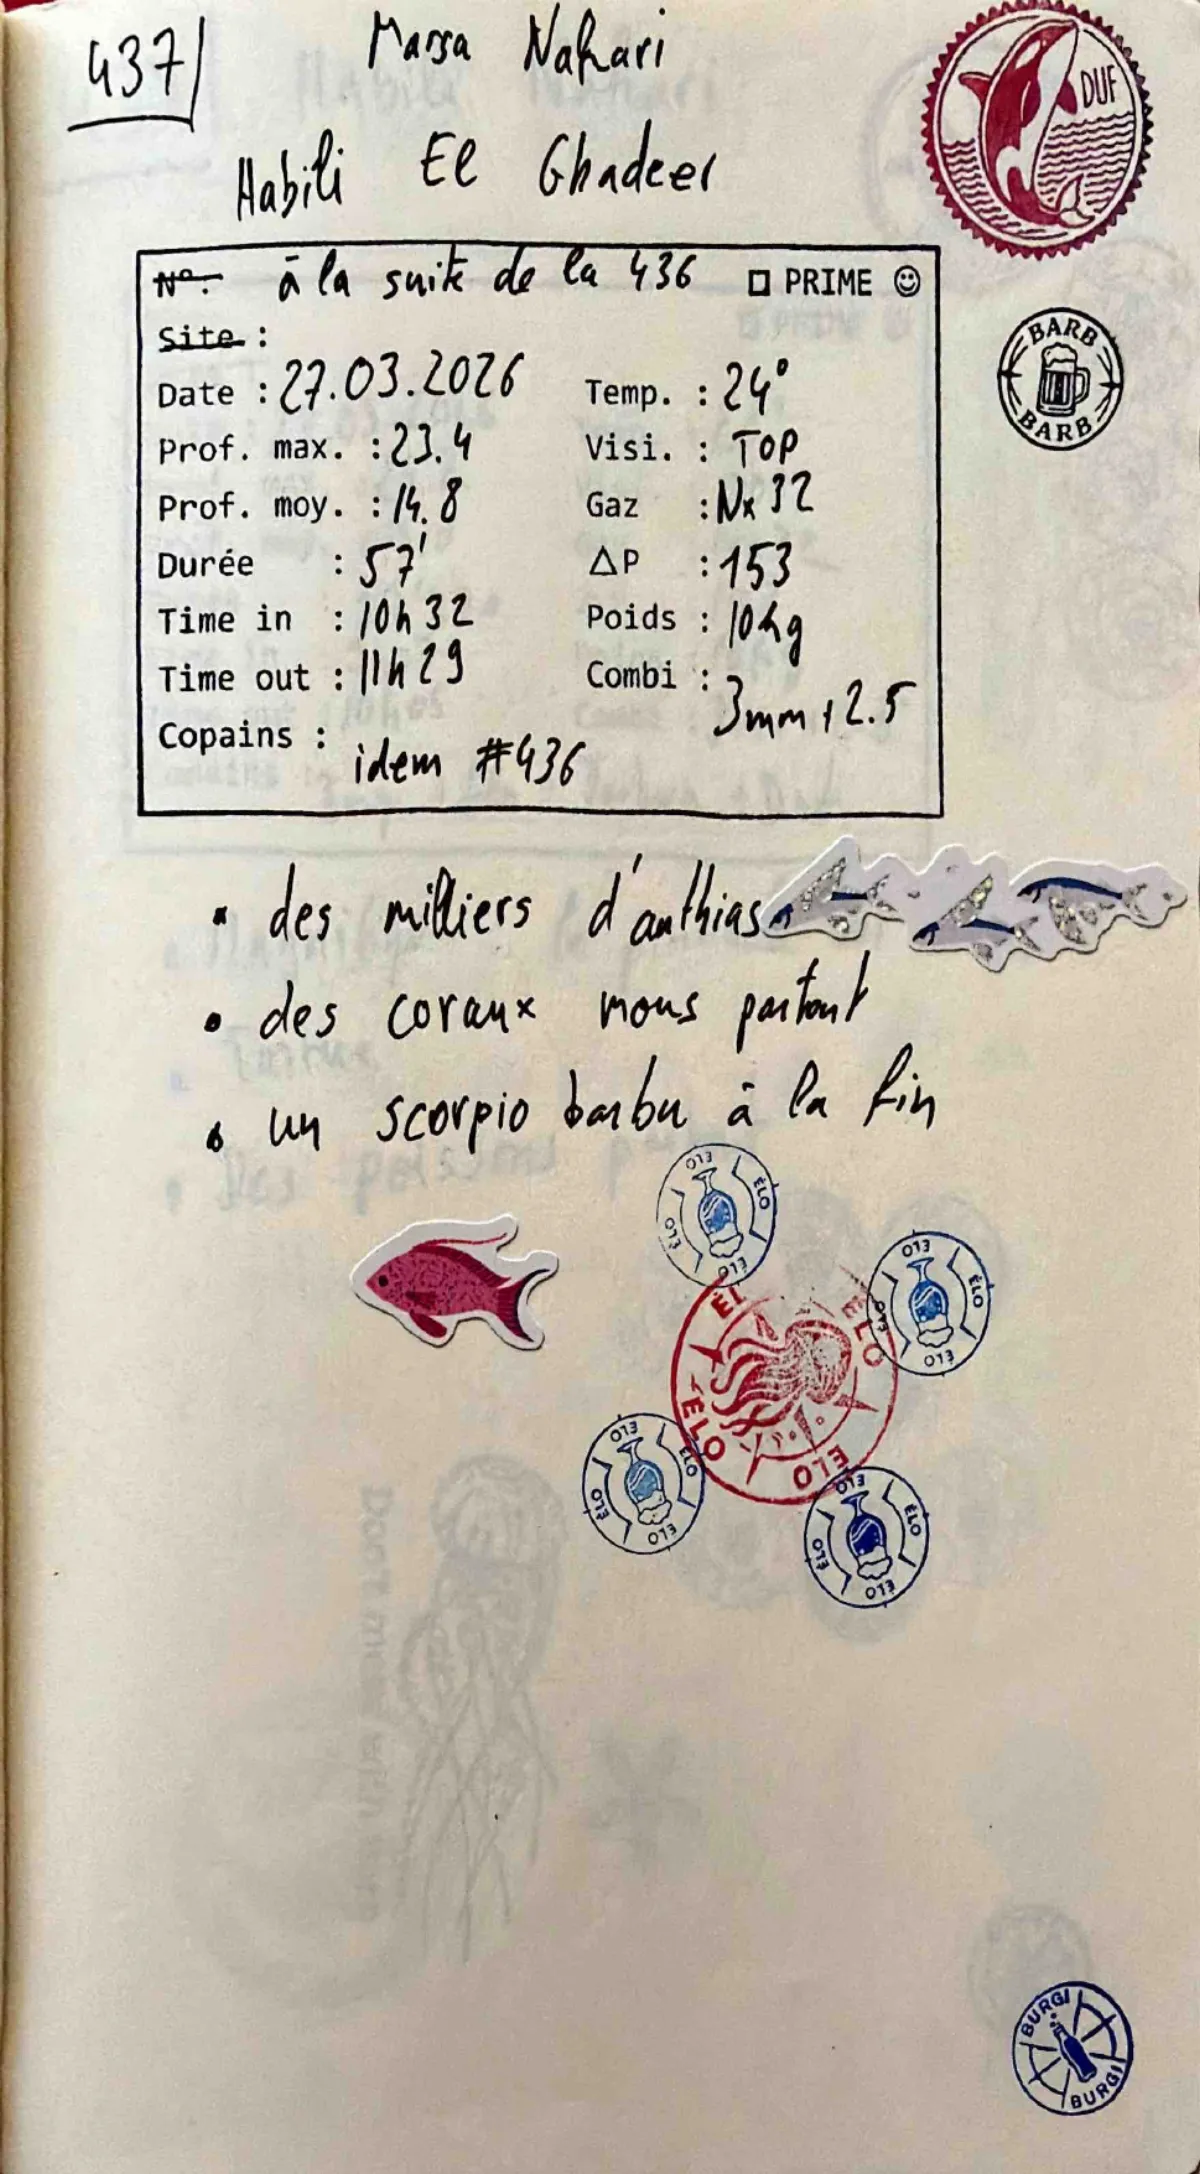 437/
Marsa Nahari
Habili El Ghadeer
DUF
N°: à la suite de la 436 □ PRIME ☺
Site :
Date : 27.03.2026 Temp. : 24°
Prof. max. : 23.4 Visi. : TOP
Prof. moy. : 14.8 Gaz : Nx 32
Durée : 57' ΔP : 153
Time in : 10h32 Poids : 10kg
Time out : 11h29 Combi : 3mm + 2.5
Copains : idem #436
BARB
BARB
• des milliers d'anthias
• des coraux mous partout
• un scorpio barbu à la fin
ÉLO ÉLO ÉLO ÉLO
ÉLO ÉLO ÉLO ÉLO
ÉL ÉLO ÉLO ÉLO
ÉLO ÉLO ÉLO ÉLO
ÉLO ÉLO ÉLO ÉLO
BURGI
BURGI